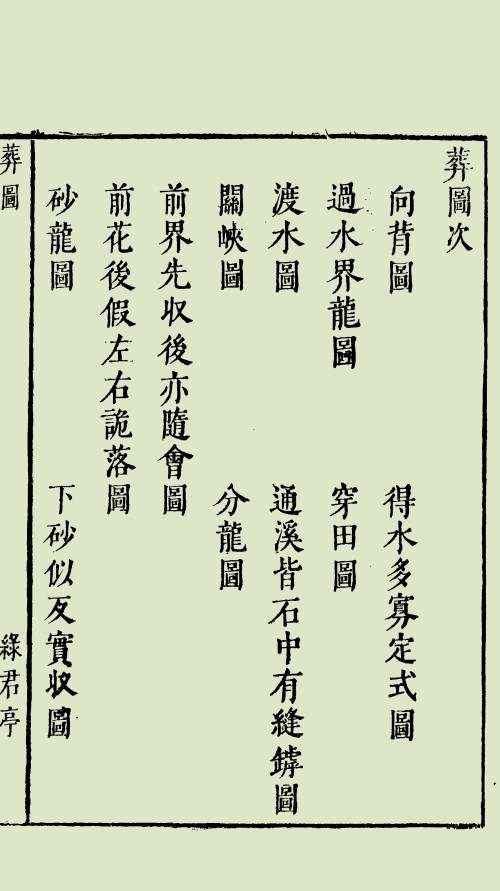 葬圖次
向背圖　得水多寡定式圖
過水界龍圖　穿田圖
渡水圖　通溪皆石中有縫鏬圖
關峽圖　分龍圖
前界先収後亦隨會圖
前花後假左右詭落圖
砂龍圖　下砂似反實収圖
葬圖　綠君亭